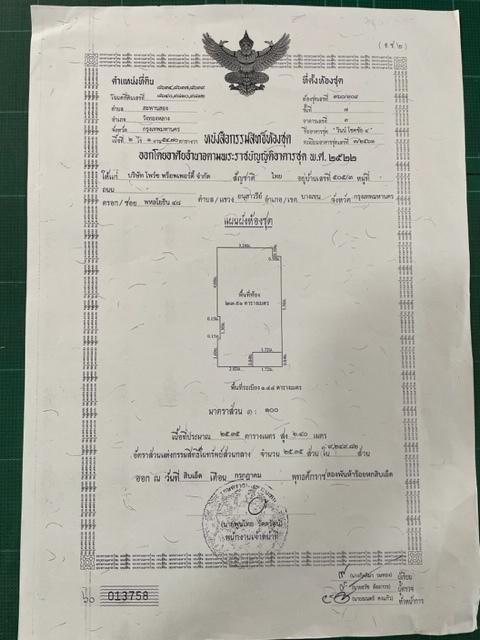 ( อ.ช.๒ )
ตำแหน่งที่ดิน
ที่ตั้งห้องชุด
โฉนดที่ดินเลขที่
ห้องชุดเลขที่
ตำบล สะพานสอง
ชั้นที่ ๗
อำเภอ วังทองหลาง
อาคารเลขที่ ๓
จังหวัด กรุงเทพมหานคร
ชื่ออาคารชุด
เนื้อที่ ๒ ไร่ ๑ งาน ตารางวา
ทะเบียนอาคารชุดเลขที่
หนังสือกรรมสิทธิ์ห้องชุด
ออกโดยอาศัยอำนาจตามพระราชบัญญัติอาคารชุด พ.ศ. ๒๕๒๒
ให้แก่ บริษัท ไพร้ซ พร็อพเพอร์ตี้ จำกัด สัญชาติ ไทย อยู่บ้านเลขที่ ๕๐๕/๓ หมู่ที่ -
ถนน
ตรอก/ซอย พหลโยธิน ๔๘ ตำบล/แขวง อนุสาวรีย์ อำเภอ/เขต บางเขน จังหวัด กรุงเทพมหานคร
แผนผังห้องชุด
พื้นที่ห้อง
ตารางเมตร
0.15
0.15
1.72
2.02
1.72
พื้นที่ระเบียง ๑.๔๔ ตารางเมตร
มาตราส่วน ๑ : ๑๐๐
เนื้อที่ประมาณ ๒๕.๓๕ ตารางเมตร สูง ๒.๔๐ เมตร
อัตราส่วนแห่งกรรมสิทธิ์ในทรัพย์ส่วนกลาง จำนวน ๒๕.๓๕ ส่วน ใน ส่วน
ออก ณ วันที่ สิบเอ็ด เดือน กรกฎาคม พุทธศักราช สองพันห้าร้อยหกสิบเอ็ด
พนักงานเจ้าหน้าที่
ผู้เขียน
ผู้ตรวจ
หัวหน้าการ
๖๐ 013758